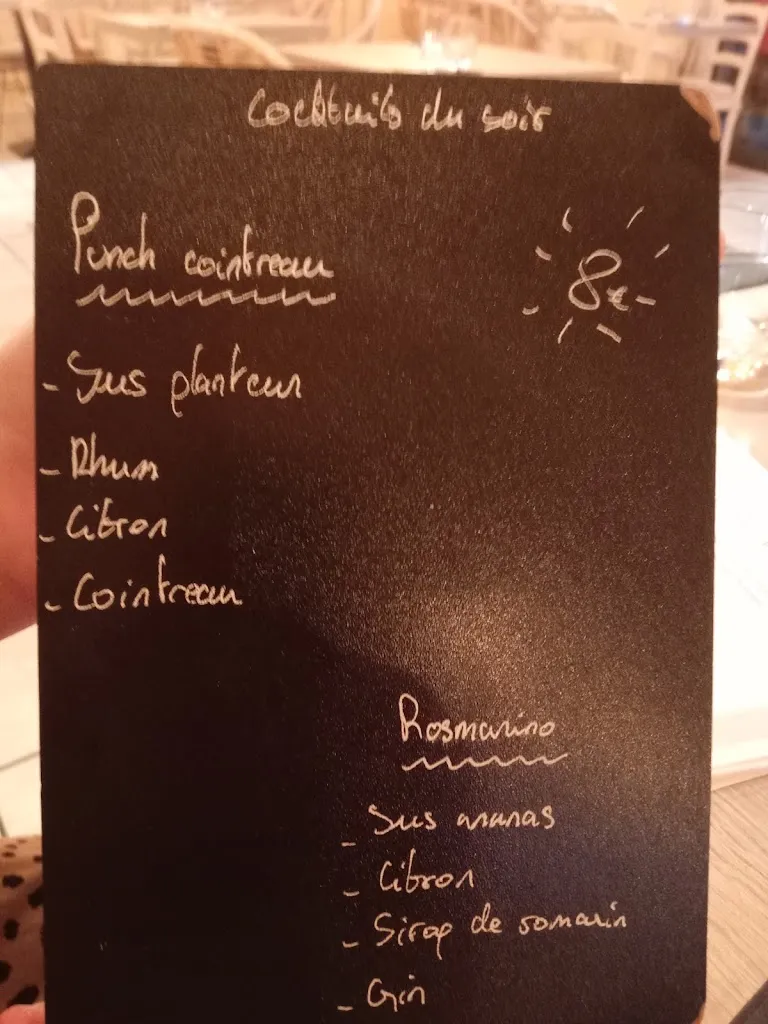 Cocktails du soir
Punch cointreau
8€
- Jus planteur
- Rhum
- Citron
- Cointreau
Rosmarino
- Jus ananas
- Citron
- Sirop de romarin
- Gin